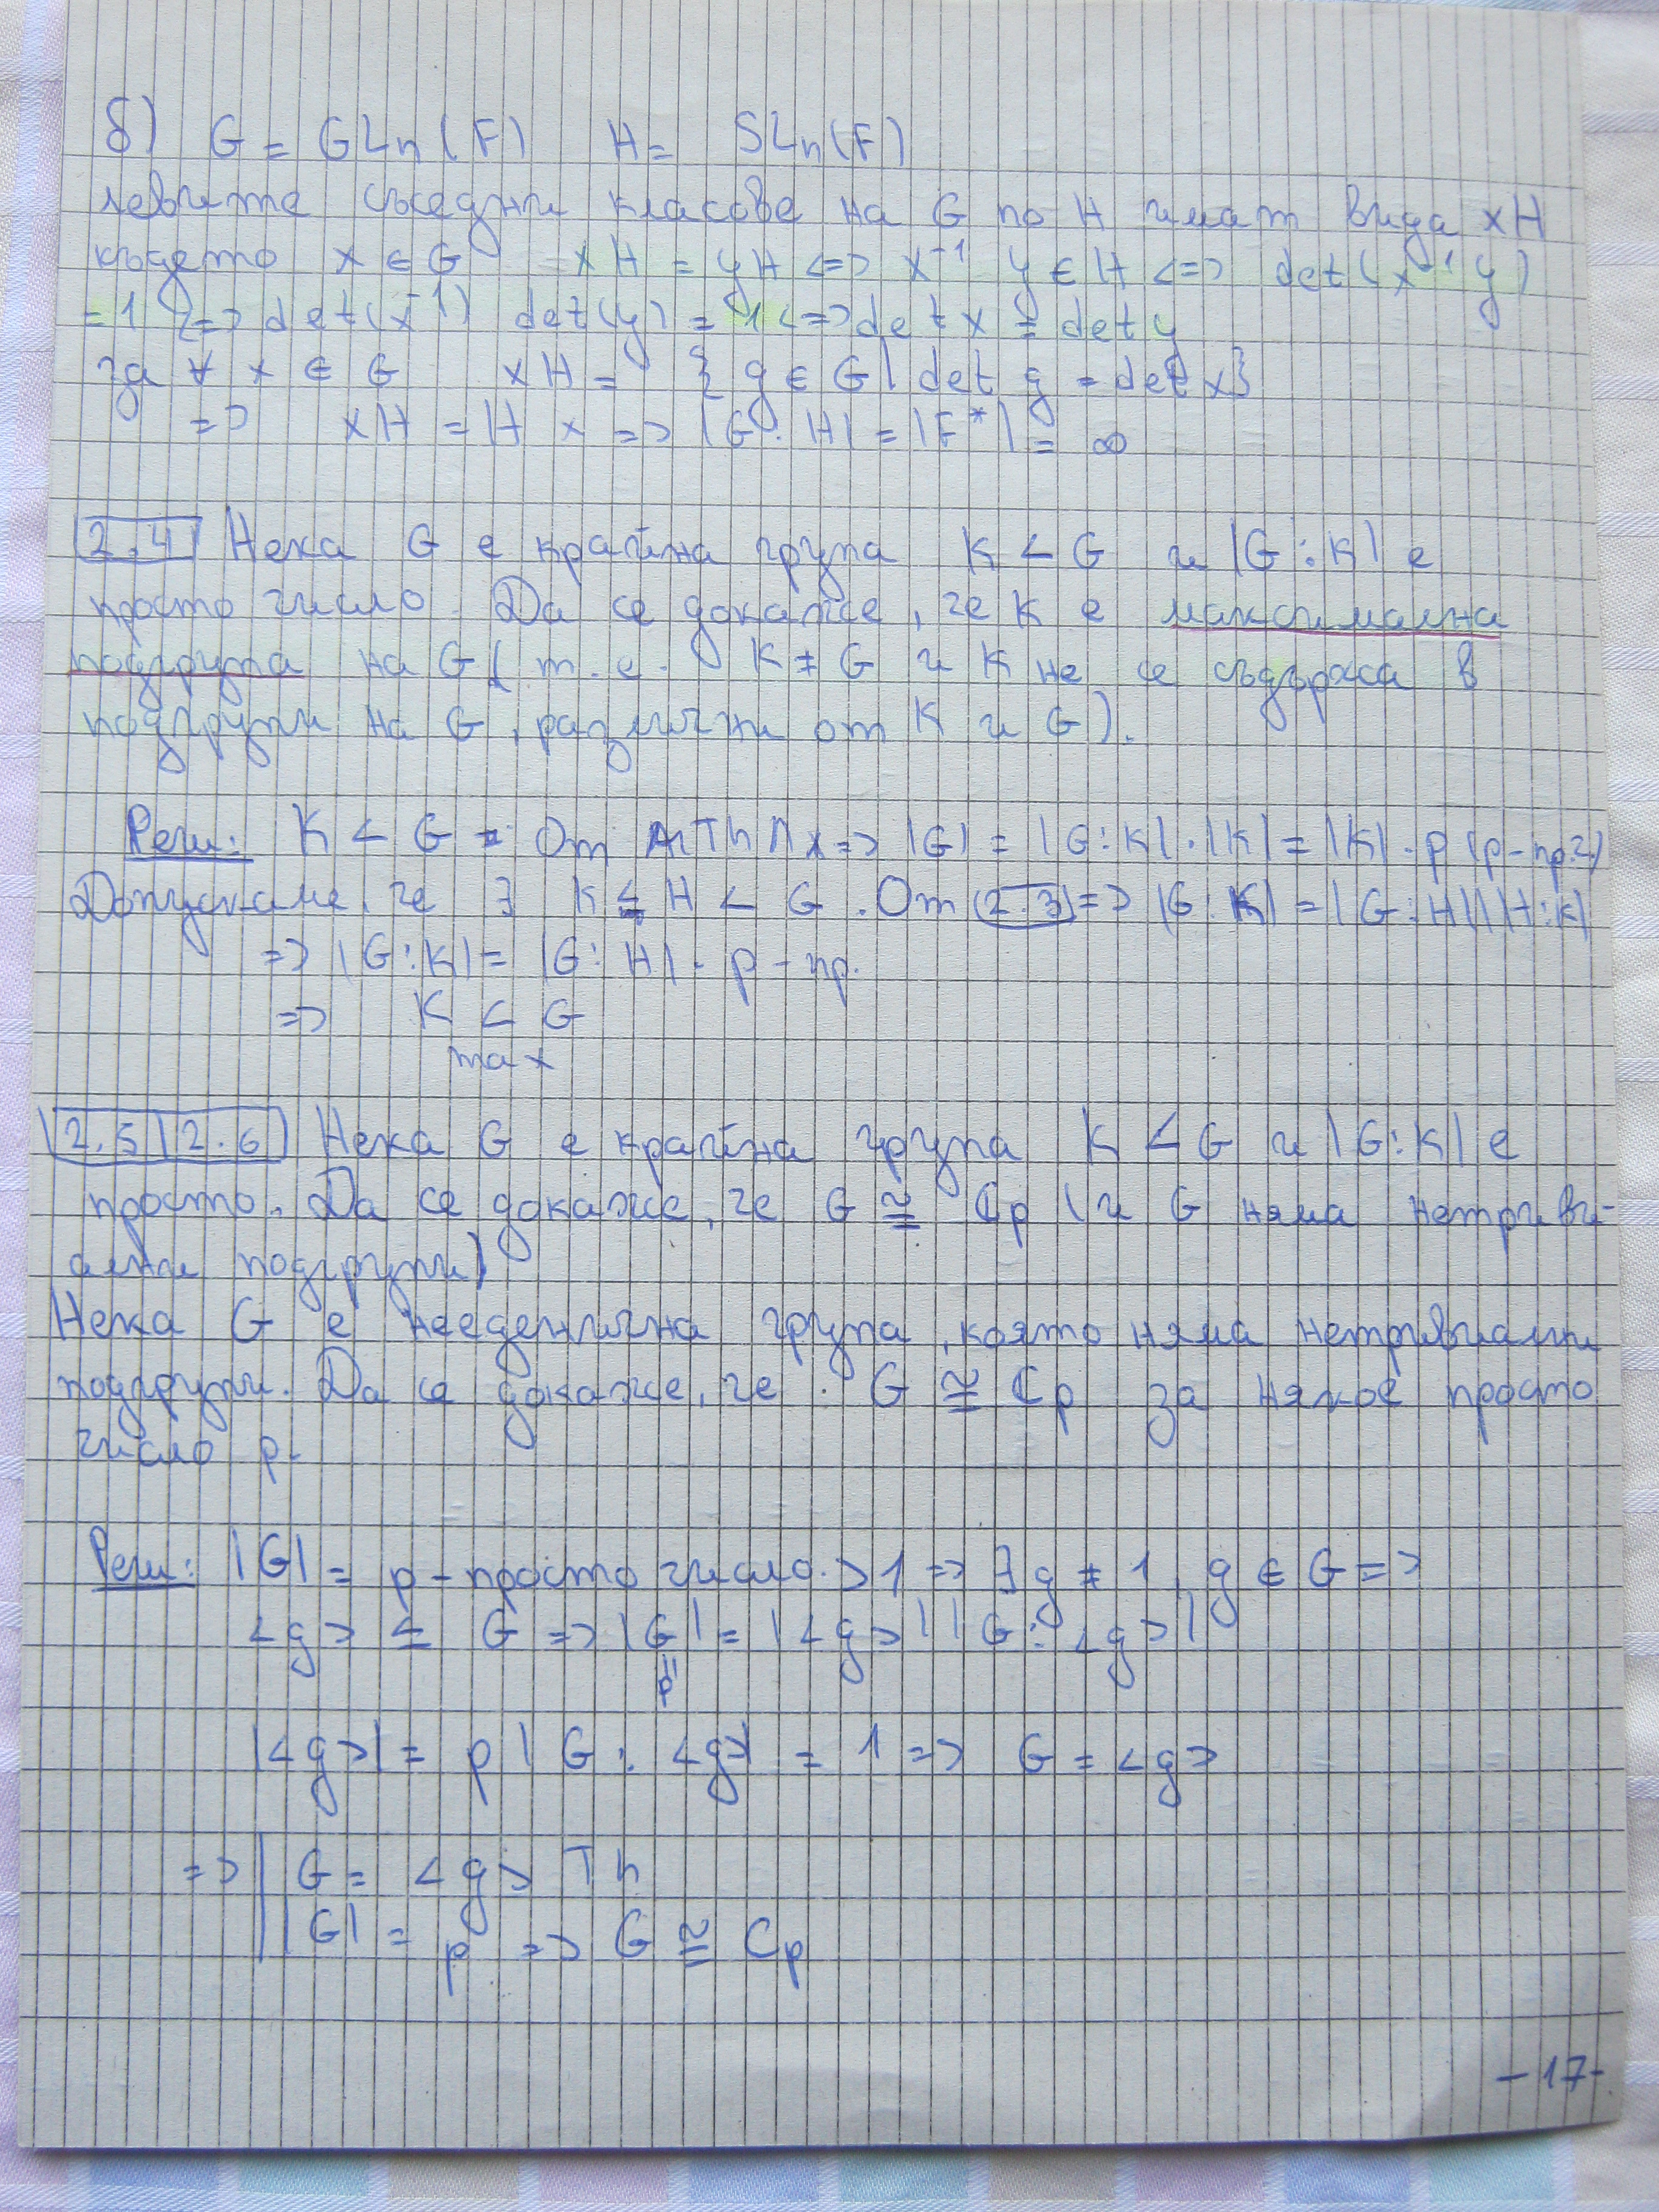 б) G = GLn(F) H = SLn(F)
левите съседни класове на G по H имат вида xH
където x ∈ G xH = yH <=> x⁻¹ y ∈ H <=> det(x⁻¹ y)
= 1 <=> det(x⁻¹) det(y) = 1 <=> det x = det y
за ∀ x ∈ G xH = { g ∈ G | det g = det x}
=> xH = H x => |G : H| = |F*| = ∞
2.4 Нека G е крайна група K < G и |G : K| е
просто число. Да се докаже, че K е максимална
подгрупа на G ( т.е. K ≠ G и K не се съдържа в
подгрупи на G, различни от K и G).
Реш: K < G От Th => |G| = |G : K| . |K| = |K| . p (p - пр.ч.)
Допускаме, че ∃ K ≤ H < G . От (2.3) => |G : K| = |G : H| |H : K|
=> |G : K| = |G : H| . p - пр.
=> K < G
max
2.5 2.6 Нека G е крайна група K < G и |G : K| е
просто. Да се докаже, че G ≅ Cp (и G няма нетриви-
ални подгрупи)
Нека G е неединична група, която няма нетривиални
подгрупи. Да се докаже, че G ≅ Cp за някое просто
число p.
Реш: |G| = p - просто число > 1 => ∃ g ≠ 1, g ∈ G =>
<g> ≤ G => |G| = |<g>| |G : <g>|
p
|<g>| = p |G : <g>| = 1 => G = <g>
=> | G = <g> Th
|G| = p => G ≅ Cp
- 17 -